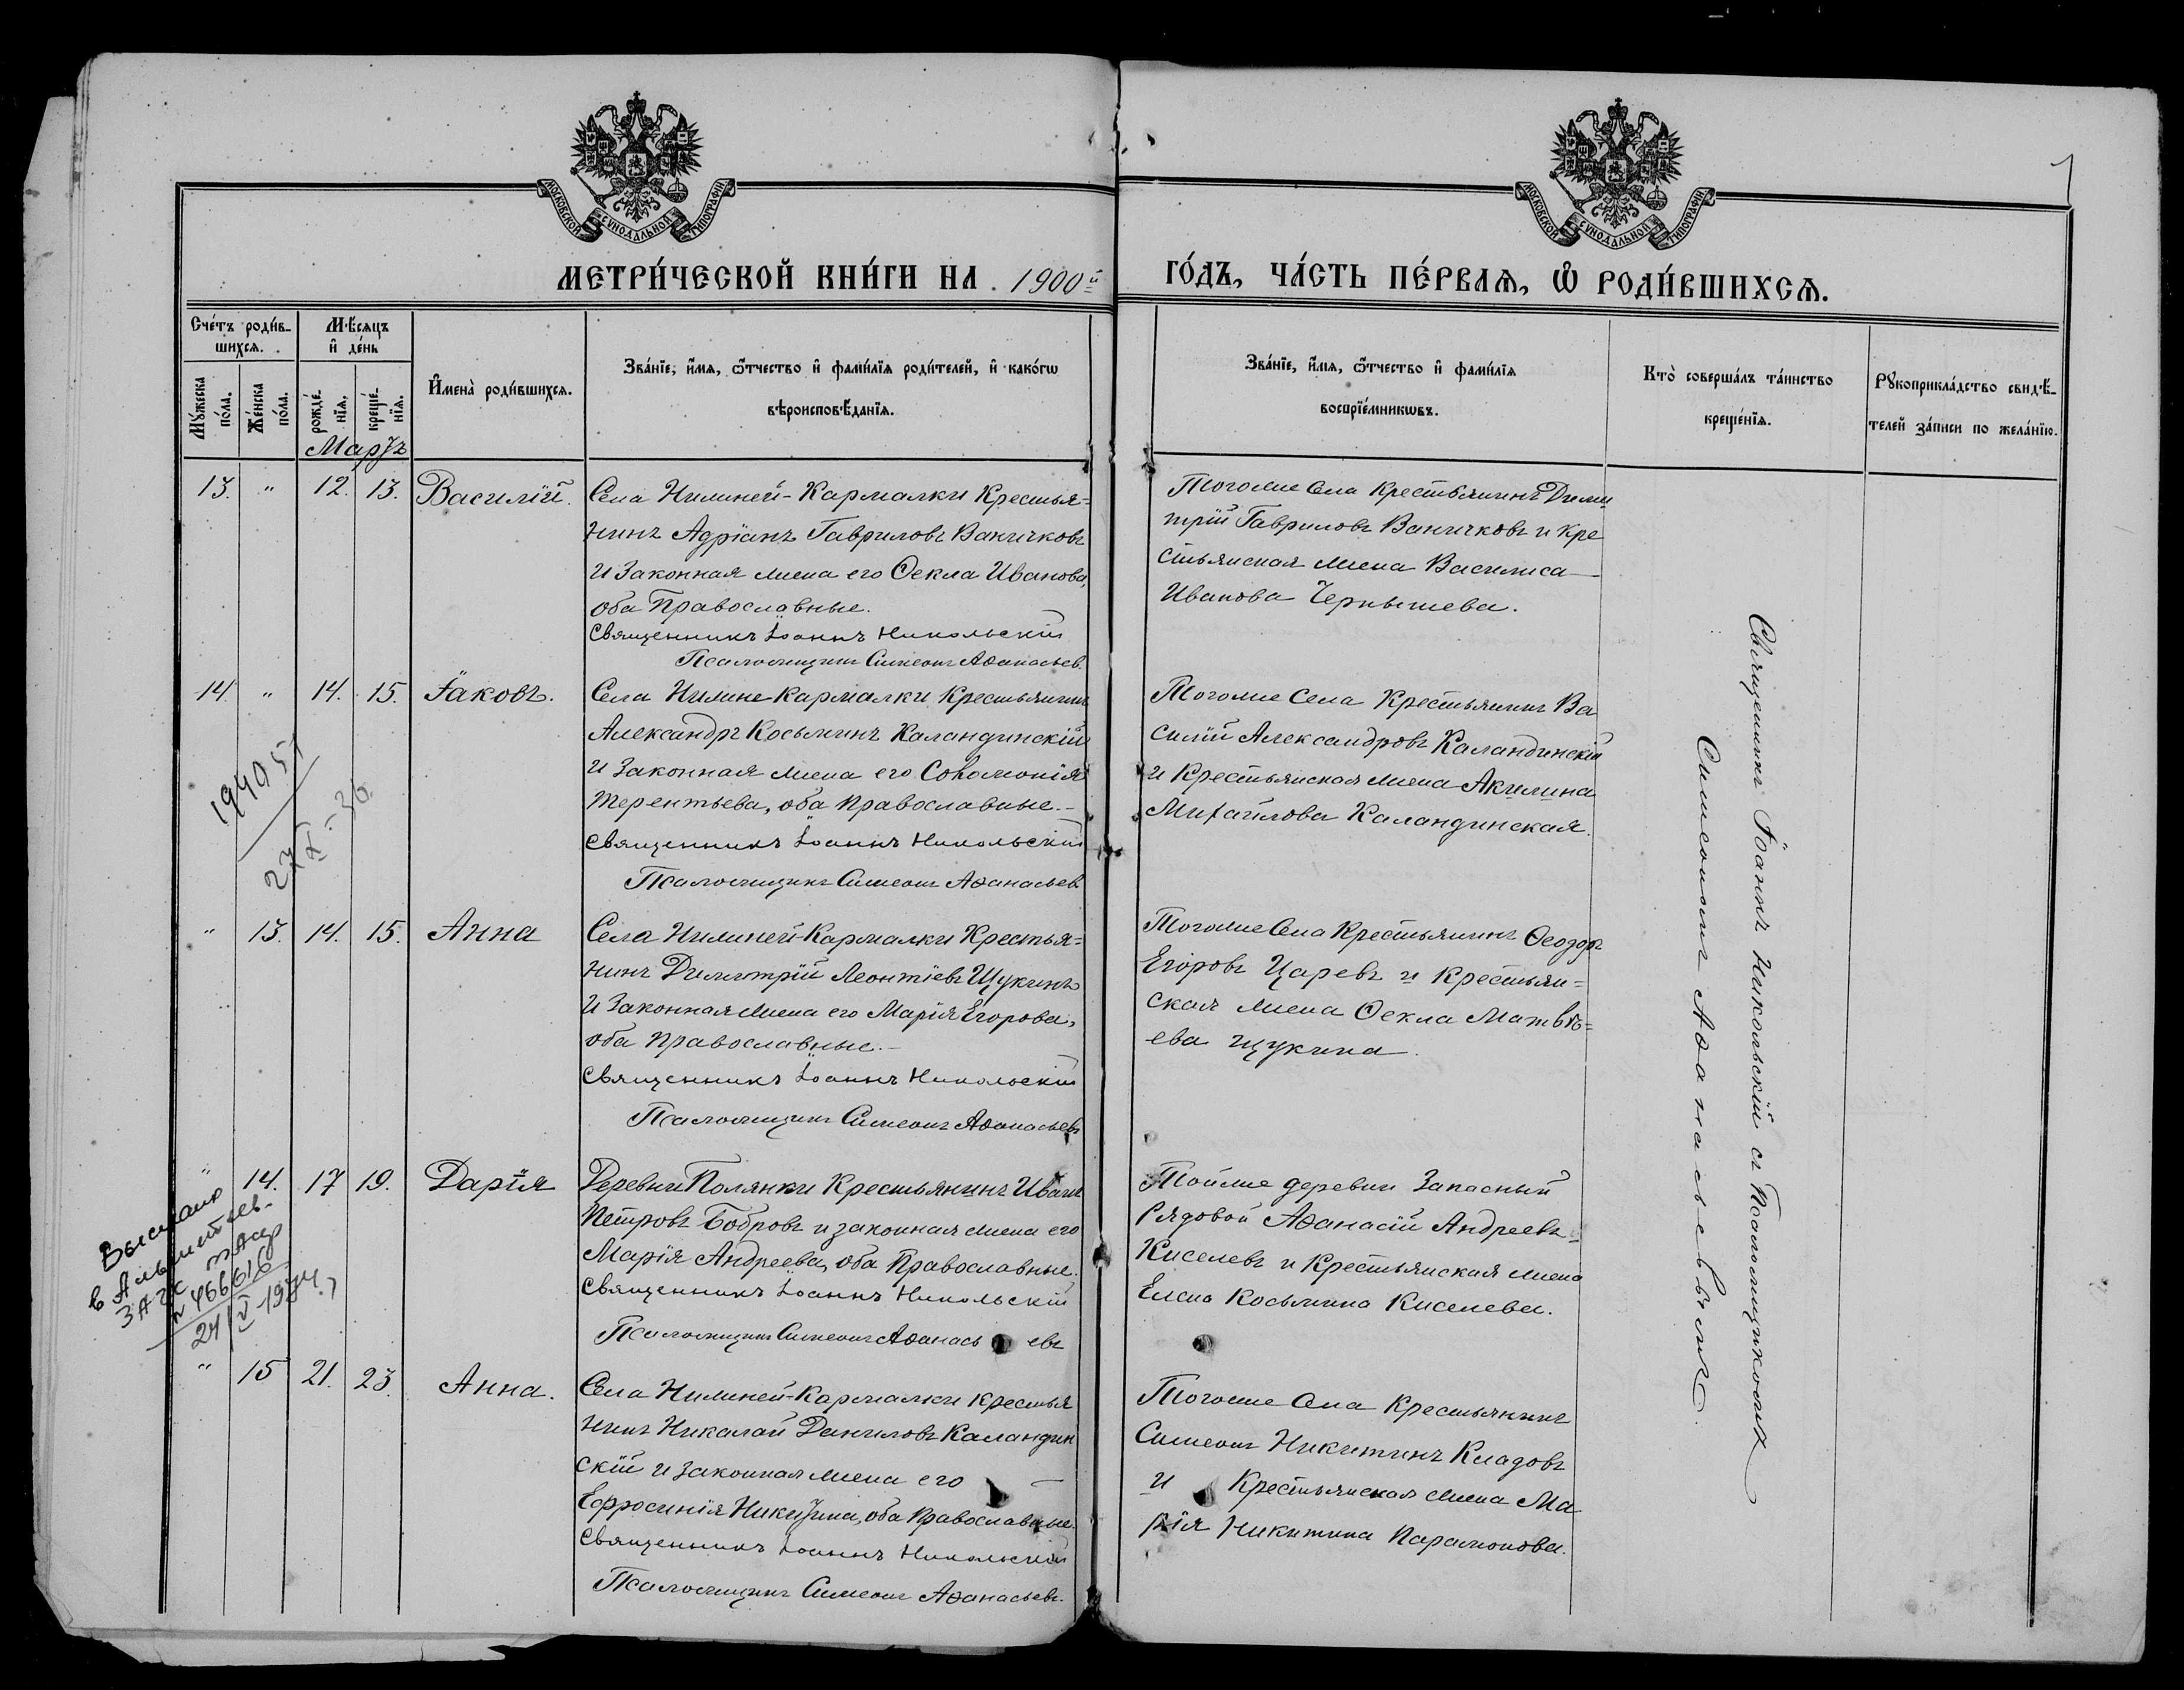 МОСКОВСКОЙ СѴНОДАЛЬНОЙ ТИПОГРАФІИ
МОСКОВСКОЙ СѴНОДАЛЬНОЙ ТИПОГРАФІИ
МЕТРИ́ЧЕСКОЙ КНИ́ГИ НА 1900й
ГО́ДЪ, ЧА́СТЬ ПЕ́РВАѦ, Ѡ҆ РОДИ́ВШИХСѦ.
Сче́тъ роди́в-
шихсѧ.
Мѣ́сяцъ
и҆ де́нь
Мꙋ́жеска
по́ла.
Же́нска
по́ла.
рожде́-
нїѧ.
креще́-
нїѧ.
И҆мена̀ роди́вшихсѧ.
Зва́нїе, и҆́мѧ, ѻ҆́тчество и҆ фами́лїѧ роди́телей, и҆ како́гѡ
вѣроисповѣ́данїѧ.
Зва́нїе, и҆́мѧ, ѻ҆́тчество и҆ фами́лїѧ
воспрїе́мникѡвъ.
Кто̀ соверша́лъ та́инство
креще́нїѧ.
Рꙋкоприкла́дство свидѣ́-
телей за́писи по жела́нїю.
Мартъ
13. " 12. 13. Василій.
Села Нижней-Кармалки Крестья=
нинъ Адріанъ Гавриловъ Ваничковъ
и Законная жена его Ѳекла Иванова,
оба Православные.
Священникъ Іоаннъ Никольскій
Псаломщикъ Симеонъ Аѳанасьев.
Тогоже Села Крестьянинъ Дими
трій Гавриловъ Ваничковъ и кре
стьянская жена Василиса
Иванова Чернышева.
14. " 14. 15. Іаковъ.
Села Нижне-Кармалки Крестьянинъ
Александръ Косьминъ Каландинскій
и Законная жена его Соломонія
Терентьева, оба Православные.
Священникъ Іоаннъ Никольскій
Псаломщикъ Симеонъ Аѳанасьев
Тогоже Села Крестьянинъ Ва
силій Александровъ Каландинскій
и Крестьянская жена Акилина
Михайлова Каландинская.
194051
27/X-36
" 13. 14. 15. Анна
Села Нижней-Кармалки Крестья=
нинъ Димитрій Леонтіевъ Щукинъ
и Законная жена его Марія Егорова,
оба Православные.
Священникъ Іоаннъ Никольскій
Псаломщикъ Симеонъ Аѳанасьевъ
Тогоже Села Крестьянинъ Ѳеодоръ
Егоровъ Царевъ и крестьян=
ская жена Ѳекла Матвѣ=
ева Щукина.
" 14. 17 19. Дарія
Деревни Полянки Крестьянинъ Иванъ
Петровъ Бобровъ и законная жена его
Марія Андреева, оба Православные.
Священникъ Іоаннъ Никольскій
Псаломщикъ Симеонъ Аѳанасьевъ
Тойже деревни Запасный
Рядовой Аѳанасій Андреевъ
Киселевъ и Крестьянская жена
Елена Косьмина Киселева.
Выслано
в Альметьев-
ЗАГС ТАССР
№ 466616
24/V-1974 г.
" 15 21. 23. Анна.
Села Нижней-Кармалки крестья
нинъ Николай Даниловъ Каландин
скій и законная жена его
Ефросинія Никитина, оба Православные.
Священникъ Іоаннъ Никольскій
Псаломщикъ Симеонъ Аѳанасьевъ.
Тогоже Села Крестьянинъ
Симеонъ Никитинъ Кладовъ
и Крестьянская жена Ма
рія Никитина Парамонова.
Священникъ Іоаннъ Никольскій съ Псаломщикомъ
Симеономъ Аѳанасьевымъ.